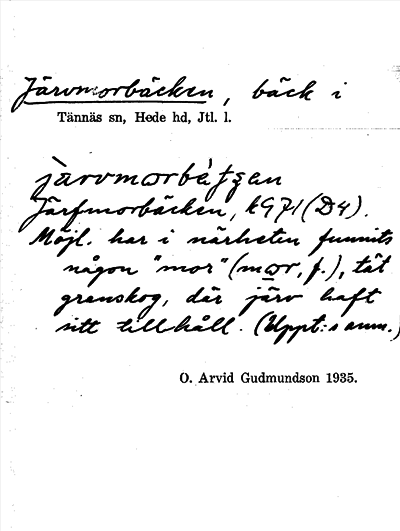 Järvmorbäcken, bäck i
Tännäs sn, Hede hd, Jtl. l.
järvmorbätʒen
Järfmorbäcken, k971(D4).
Möjl. har i närheten funnits
någon "mor" (mor, f.), tät
granskog, där järv haft
sitt tillhåll. (Uppt:s anm.)
O. Arvid Gudmundson 1935.